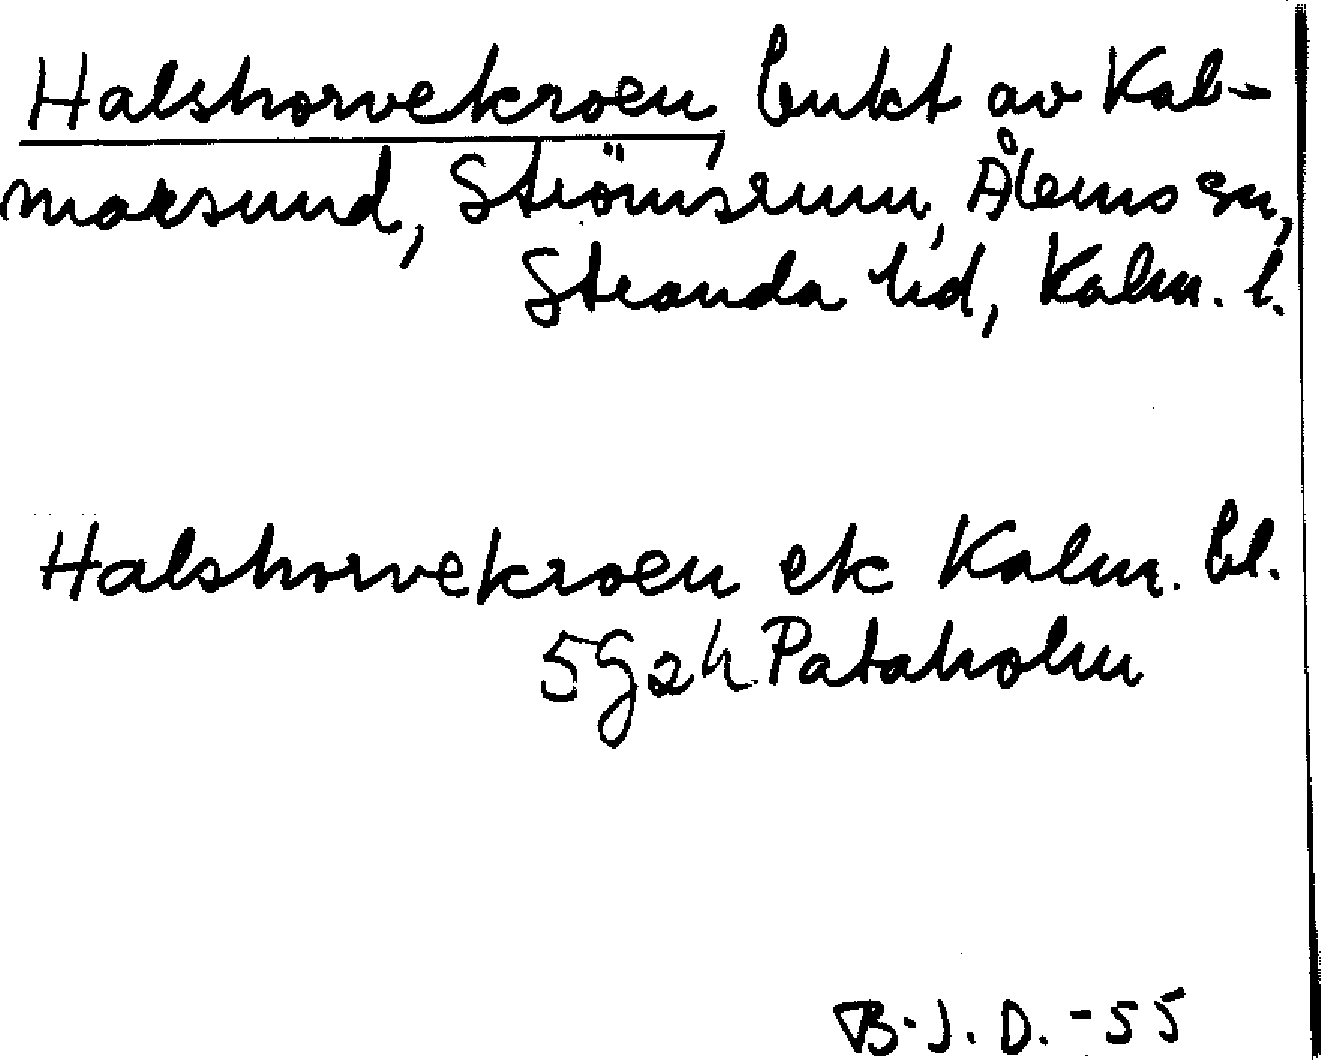 Halshorvekroen, bukt av Kal-
marsund, Strömsrum, Ålems sn,
Stranda hd, Kalm. l.
Halshorvekroen ek Kalm. bl.
5G2h Pataholm
B.J.D.-55